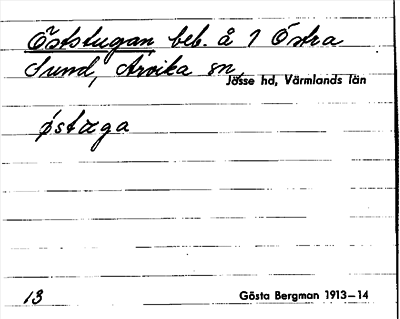 Öststugan, beb. å 1 Östra
Sund, Arvika sn,
Jösse hd, Värmlands län
östæga
13
Gösta Bergman 1913–14